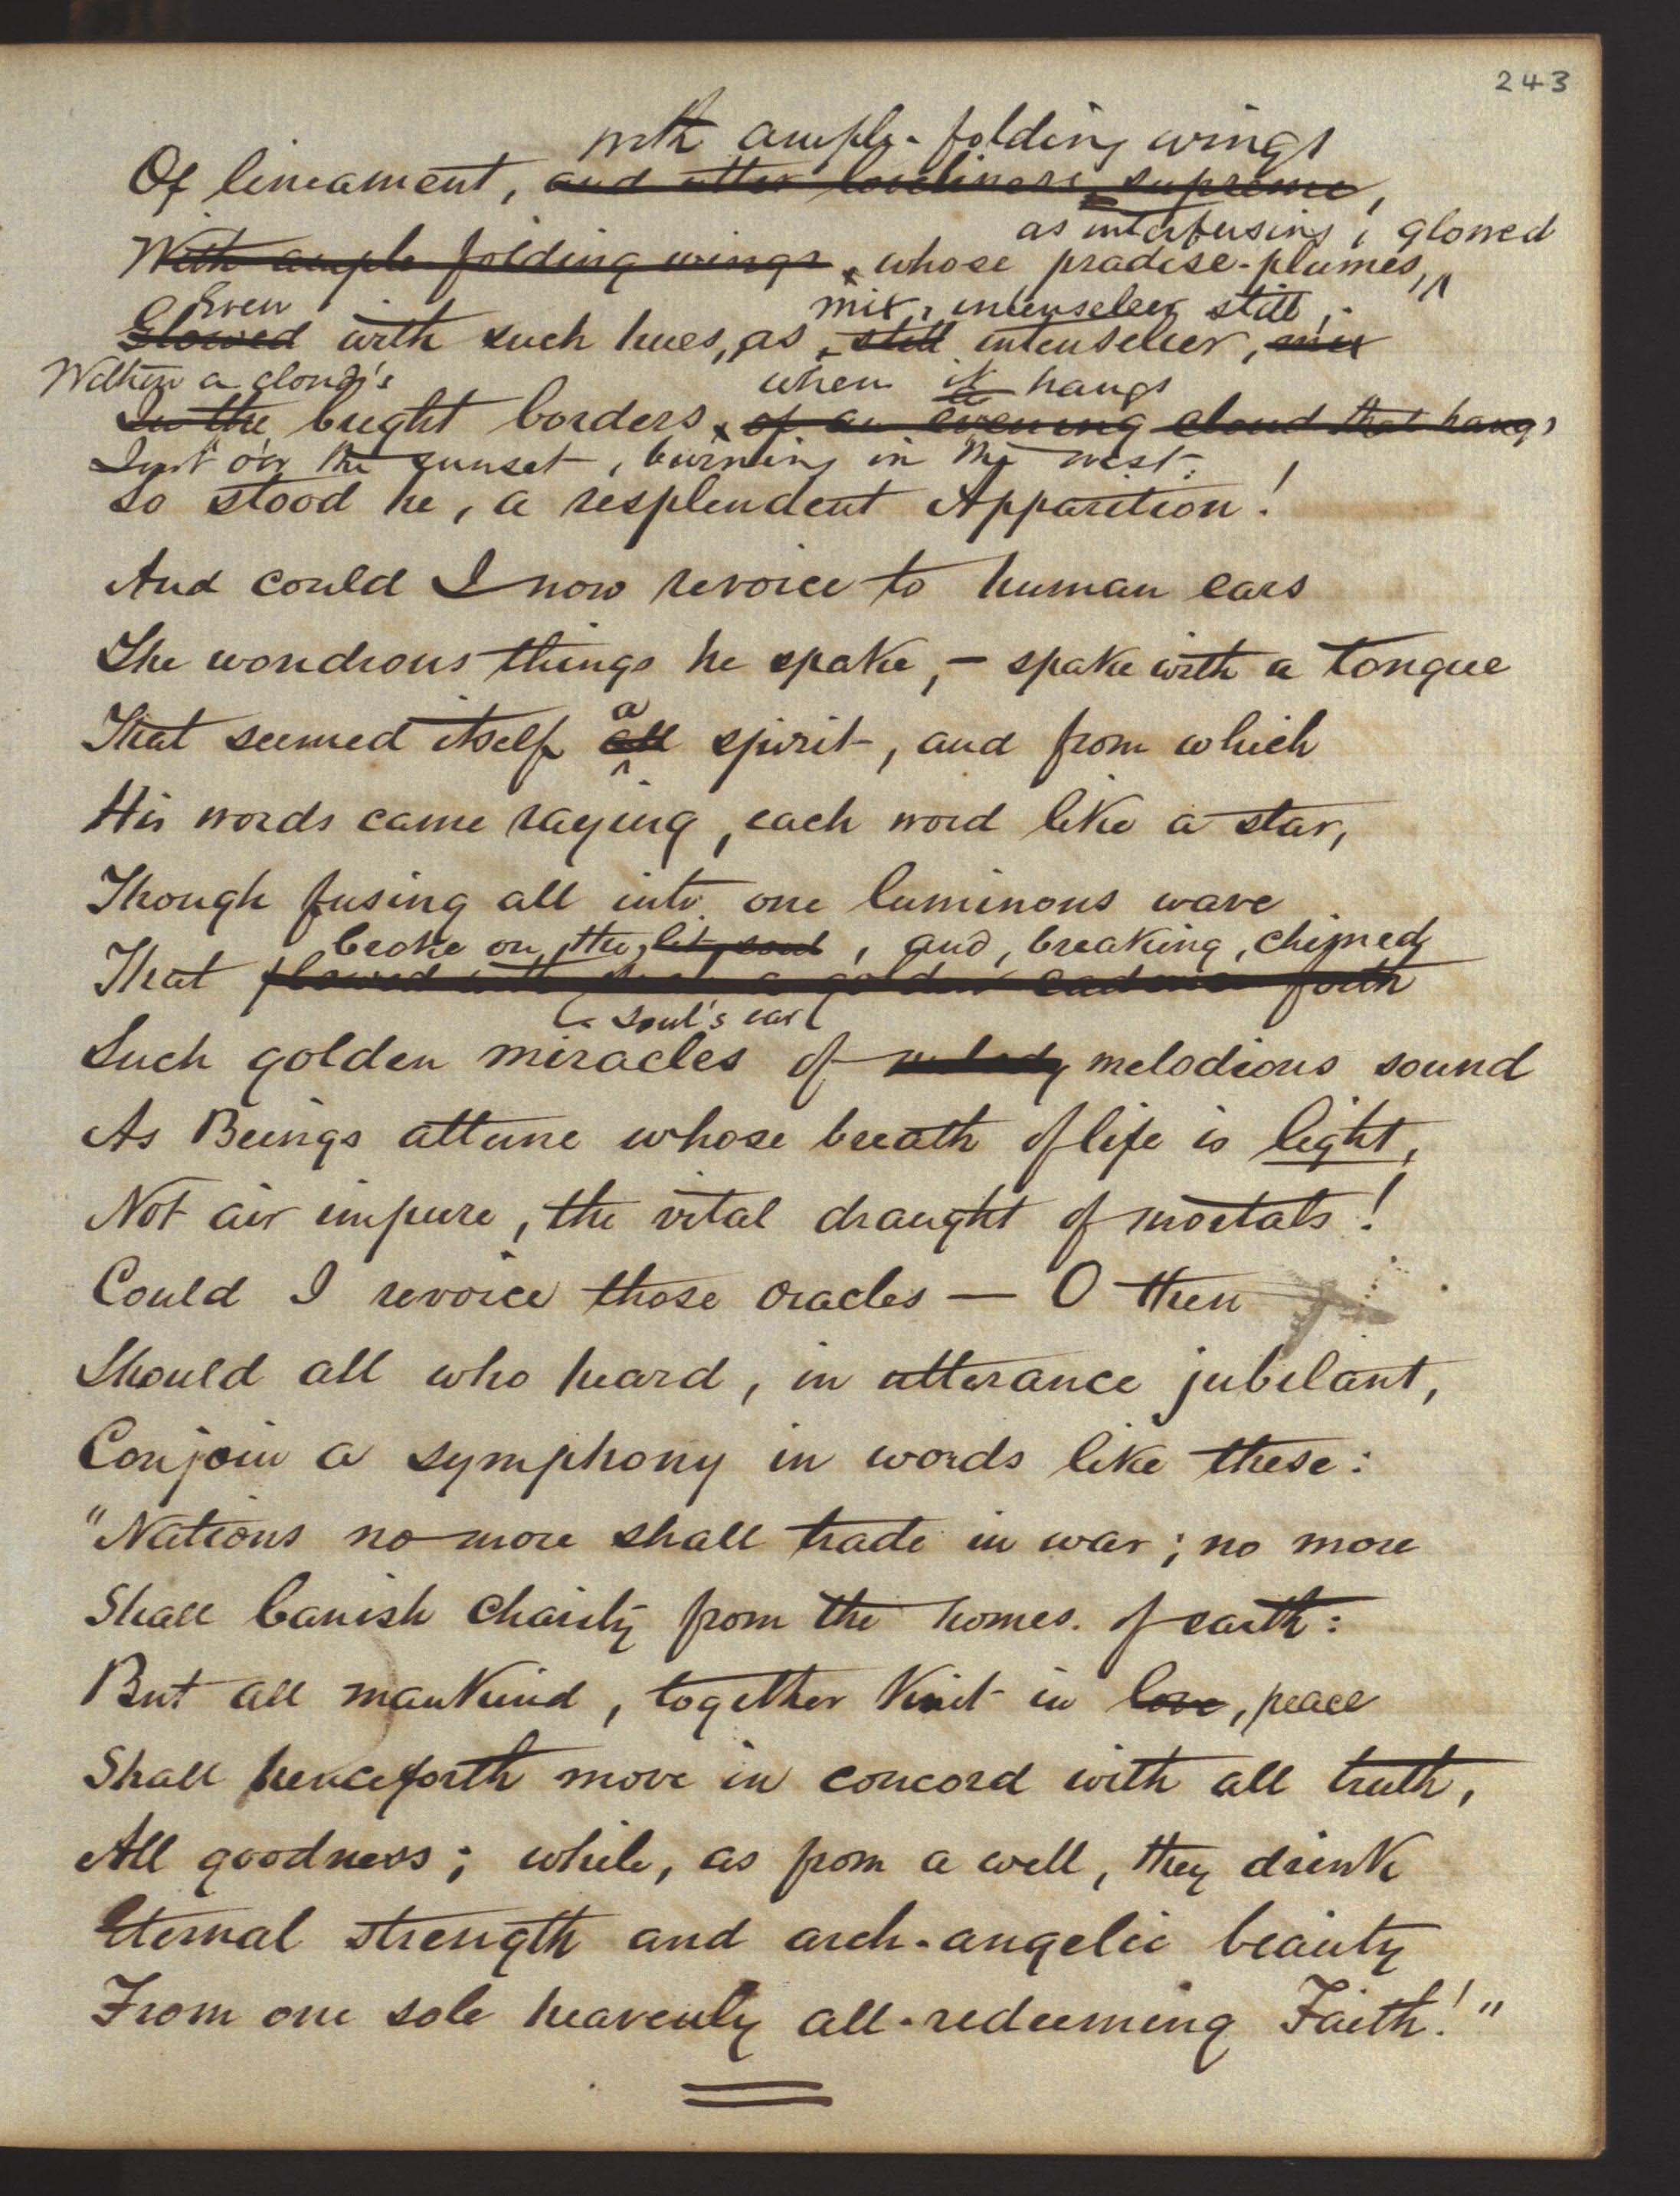 243
with ample-folding wings
Of lineament, and utter loveliness supreme,
as interfusing, glowed
With ample folding wings, whose pradise-plumes,
Even mix, intenselier still,
Glowed with such hues, as still intenselier, mix
Within a cloud's when it hangs
In the bright borders, of an evening cloud that hangs
Just o'er the sunset, burning in the west:
So stood he, a resplendent Apparition!
And could I now revoice to human ears
The wondrous things he spake, — spake with a tongue
a
That seemed itself all spirit, and from which
His words came raying, each word like a star,
Though fusing all into one luminous wave
broke on the lit soul, and, breaking, chimed
That flowed with such a golden cadence forth
soul's ear
Such golden miracles of melody melodious sound
As Beings attune whose breath of life is light,
Not air impure, the vital draught of mortals!
Could I revoice those oracles — O then
Should all who heard, in utterance jubilant,
Conjoin a symphony in words like these:
"Nations no more shall trade in war; no more
Shall banish charity from the homes of earth:
But all mankind, together knit in love, peace
Shall henceforth move in concord with all truth,
All goodness; while, as from a well, they drink
Eternal strength and arch-angelic beauty
From one sole heavenly all-redeeming Faith!"